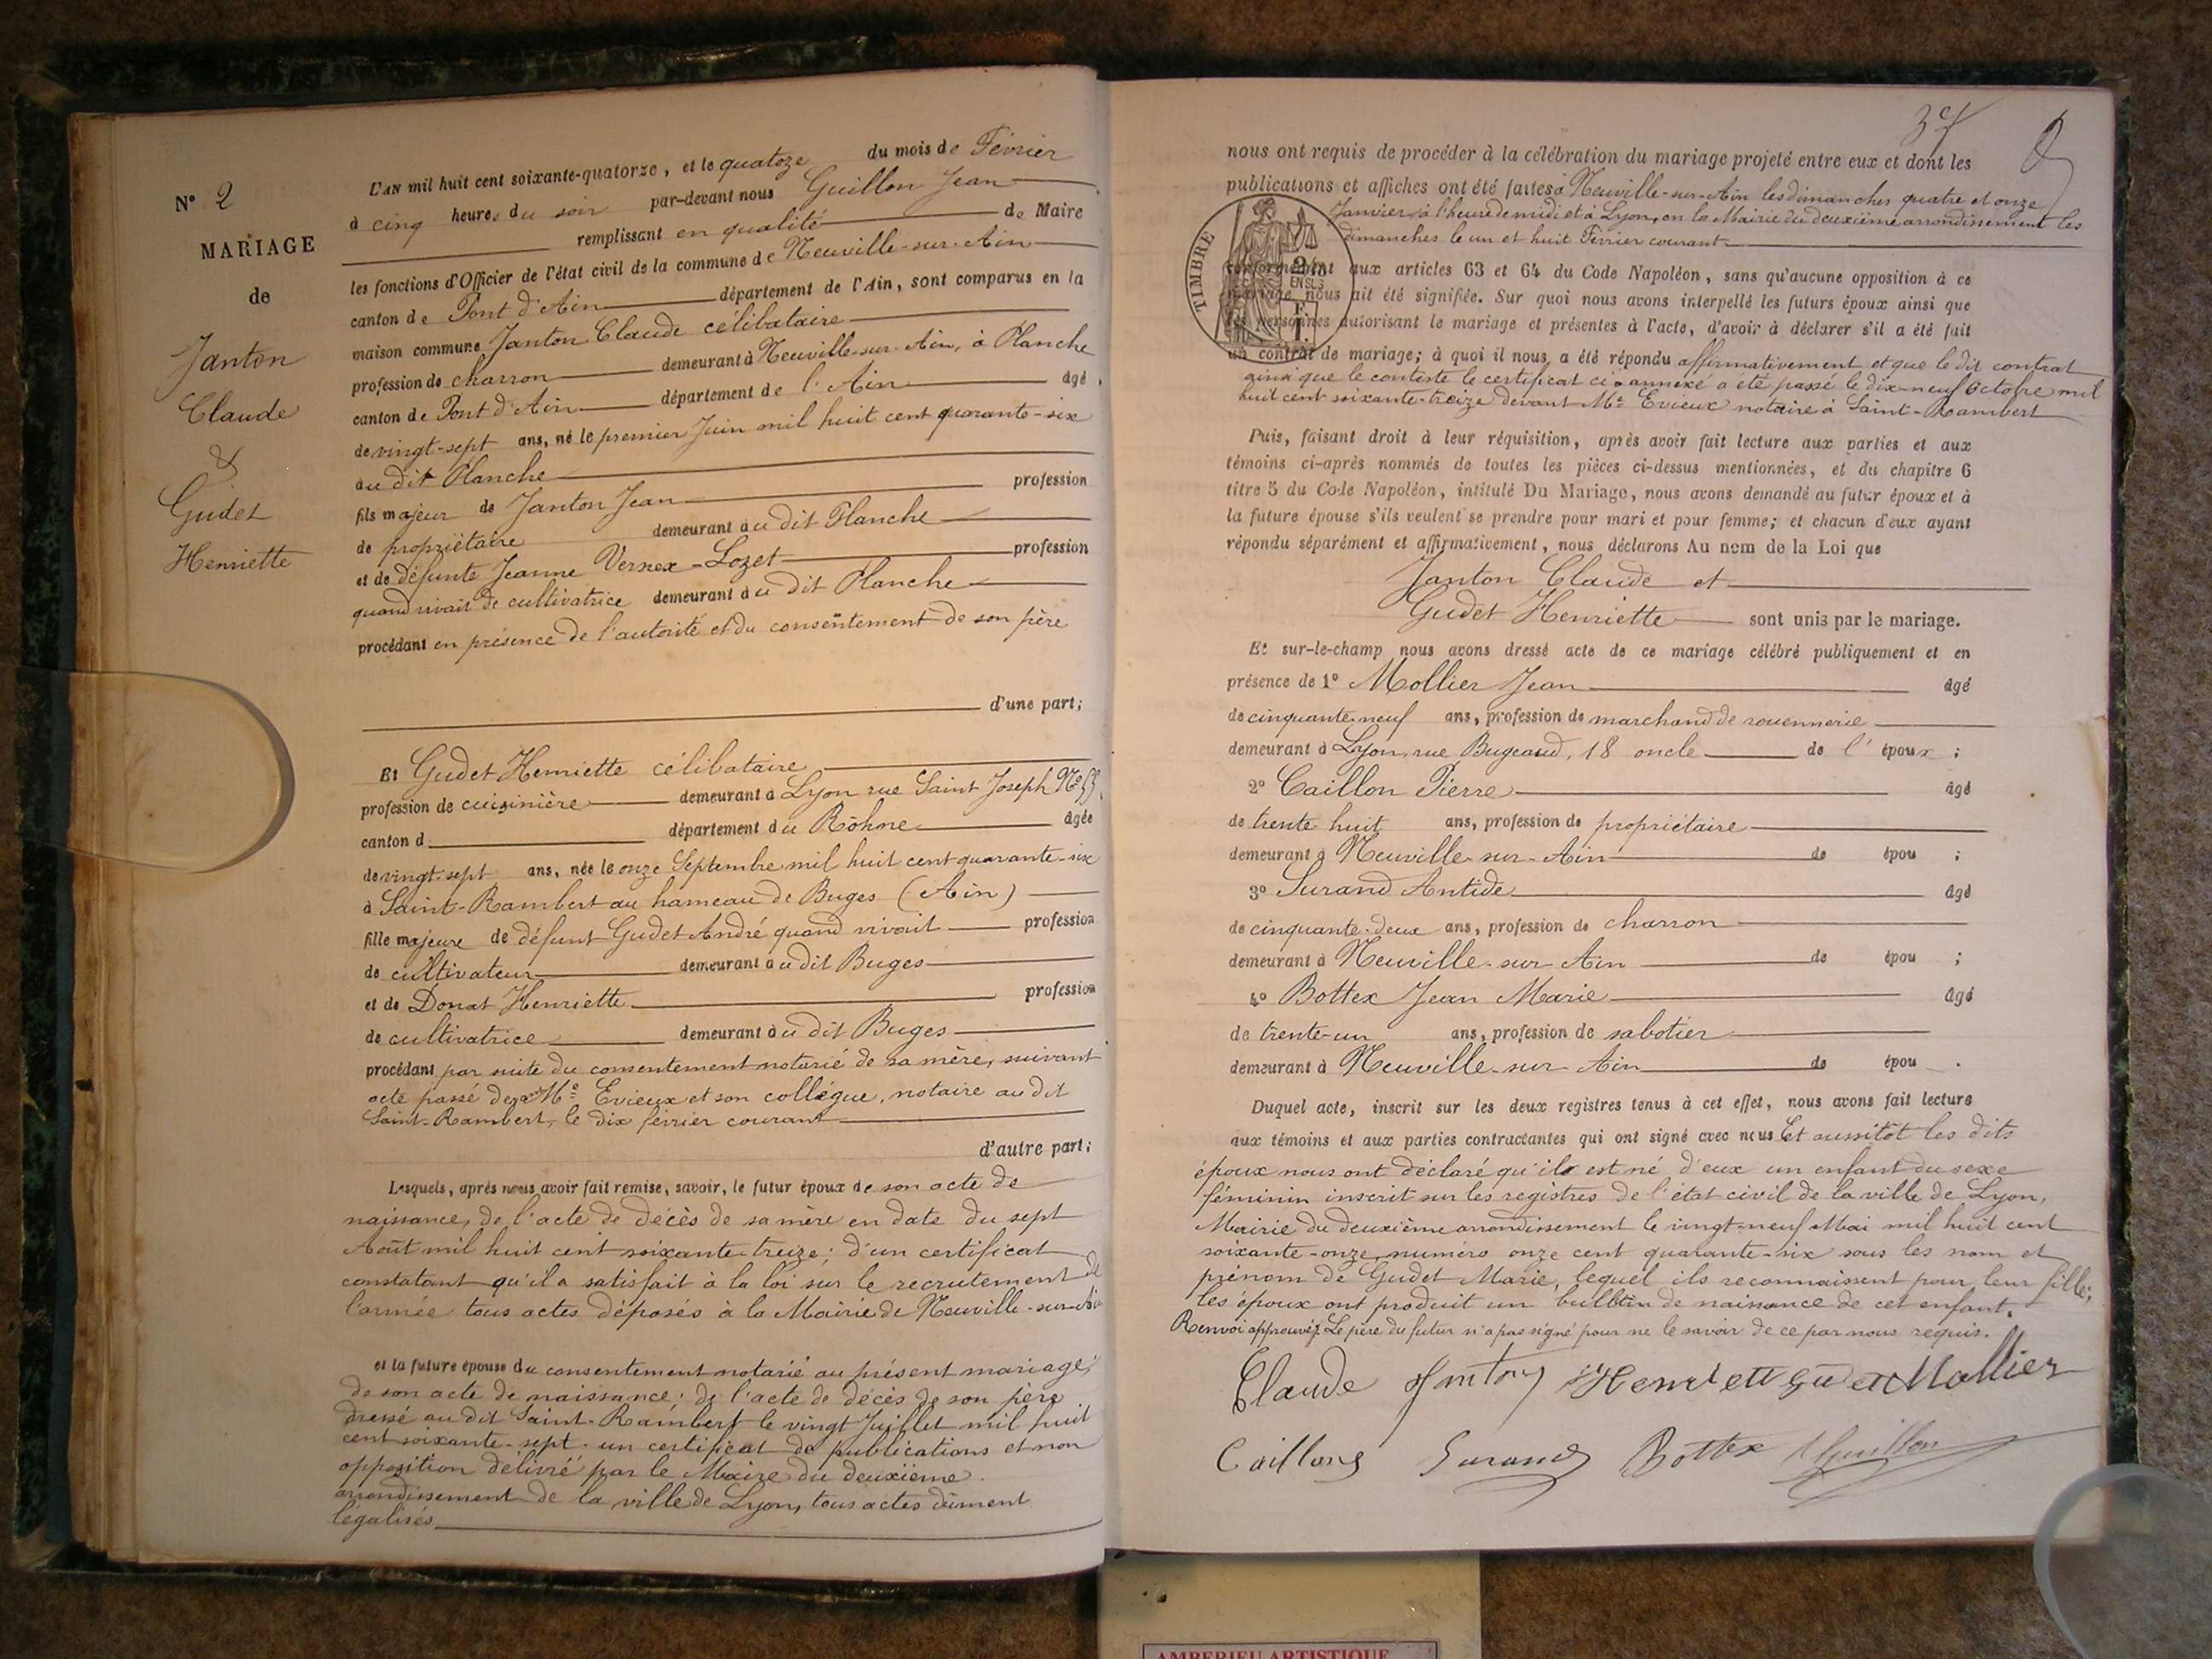 N° 2
MARIAGE
de
Janton
Claude
&
Gudet
Henriette
L'AN mil huit cent soixante-quatorze, et le quatoze du mois de Février
à cinq heures du soir par-devant nous Guillon Jean
remplissant en qualité de Maire
les fonctions d'Officier de l'état civil de la commune de Neuville-sur-Ain
canton de Pont d'Ain département de l'Ain, sont comparus en la
maison commune Janton Claude célibataire
profession de charron demeurant à Neuville-sur-Ain, à Planche
canton de Pont d'Ain département de l'Ain âgé
de vingt-sept ans, né le premier Juin mil huit cent quarante-six
au dit Planche
fils majeur de Janton Jean profession
de propriétaire demeurant au dit Planche
et de défunte Jeanne Vernex-Lozet profession
quand vivait de cultivatrice demeurant au dit Planche
procédant en présence de l'autorité et du consentement de son père
d'une part;
Et Gudet Henriette célibataire
profession de cuisinière demeurant à Lyon rue Saint Joseph N° 55
canton d département du Rôhne âgée
de vingt-sept ans, née le onze Septembre mil huit cent quarante-six
à Saint-Rambert au hameau de Buges (Ain)
fille majeure de défunt Gudet André quand vivait profession
de cultivateur demeurant au dit Buges
et de Donat Henriette profession
de cultivatrice demeurant au dit Buges
procédant par suite du consentement notarié de sa mère, suivant
acte passé devant Me Evieux et son collègue, notaire au dit
Saint-Rambert, le dix février courant
d'autre part;
Lesquels, après nous avoir fait remise, savoir, le futur époux de son acte de
naissance, de l'acte de décès de sa mère en date du sept
Août mil huit cent soixante-treize; d'un certificat
constatant qu'il a satisfait à la loi sur le recrutement de
l'armée tous actes déposés à la Mairie de Neuville-sur-Ain
et la future épouse du consentement notarié au présent mariage;
de son acte de naissance; de l'acte de décès de son père
dressé au dit Saint-Rambert le vingt Juillet mil huit
cent soixante-sept. un certificat de publications et non
opposition délivré par le Maire du deuxième
arrondissement de la ville de Lyon, tous actes dûment
légalisés
nous ont requis de procéder à la célébration du mariage projeté entre eux et dont les
publications et affiches ont été faites à Neuville-sur-Ain les dimanches quatre et onze
Janvier, à l'heure de midi et à Lyon, en la Mairie du deuxième arrondissement les
dimanches le un et huit Février courant
TIMBRE
EN SUS
conformément aux articles 63 et 64 du Code Napoléon, sans qu'aucune opposition à ce
mariage nous ait été signifiée. Sur quoi nous avons interpellé les futurs époux ainsi que
les personnes autorisant le mariage et présentes à l'acte, d'avoir à déclarer s'il a été fait
un contrat de mariage; à quoi il nous a été répondu affirmativement et que le dit contrat
ainsi que le conteste le certificat ci-annexé a été passé le dix-neuf Octobre mil
huit cent soixante-treize devant Me Evieux notaire à Saint-Rambert
Puis, faisant droit à leur réquisition, après avoir fait lecture aux parties et aux
témoins ci-après nommés de toutes les pièces ci-dessus mentionnées, et du chapitre 6
titre 5 du Code Napoléon, intitulé Du Mariage, nous avons demandé au futur époux et à
la future épouse s'ils veulent se prendre pour mari et pour femme; et chacun d'eux ayant
répondu séparément et affirmativement, nous déclarons Au nom de la Loi que
Janton Claude et
Gudet Henriette sont unis par le mariage.
Et sur-le-champ nous avons dressé acte de ce mariage célébré publiquement et en
présence de 1° Mollier Jean âgé
de cinquante-neuf ans, profession de marchand de rouennerie
demeurant à Lyon, rue Bugeaud, 18 oncle de l'époux;
2° Caillon Pierre âgé
de trente huit ans, profession de propriétaire
demeurant à Neuville-sur-Ain de épou ;
3° Surand Antide âgé
de cinquante-deux ans, profession de charron
demeurant à Neuville-sur-Ain de épou ;
4° Bottex Jean Marie âgé
de trente-un ans, profession de sabotier
demeurant à Neuville-sur-Ain de épou .
Duquel acte, inscrit sur les deux registres tenus à cet effet, nous avons fait lecture
aux témoins et aux parties contractantes qui ont signé avec nous Et aussitôt les dits
époux nous ont déclaré qu'ils est né d'eux un enfant du sexe
féminin inscrit sur les registres de l'état civil de la ville de Lyon,
Mairie du deuxième arrondissement le vingt-neuf Mai mil huit cent
soixante-onze, numéro onze cent quarante-six sous les nom et
prénom de Gudet Marie, lequel ils reconnaissent pour leur fille;
les époux ont produit un bulletin de naissance de cet enfant.
Renvoi approuvé Le père du futur n'a pas signé pour ne le savoir de ce par nous requis.
Claude Janton Henriette Gudet Mollier
Caillon Surand Bottex Guillon
AMBERIEU ARTISTIQUE